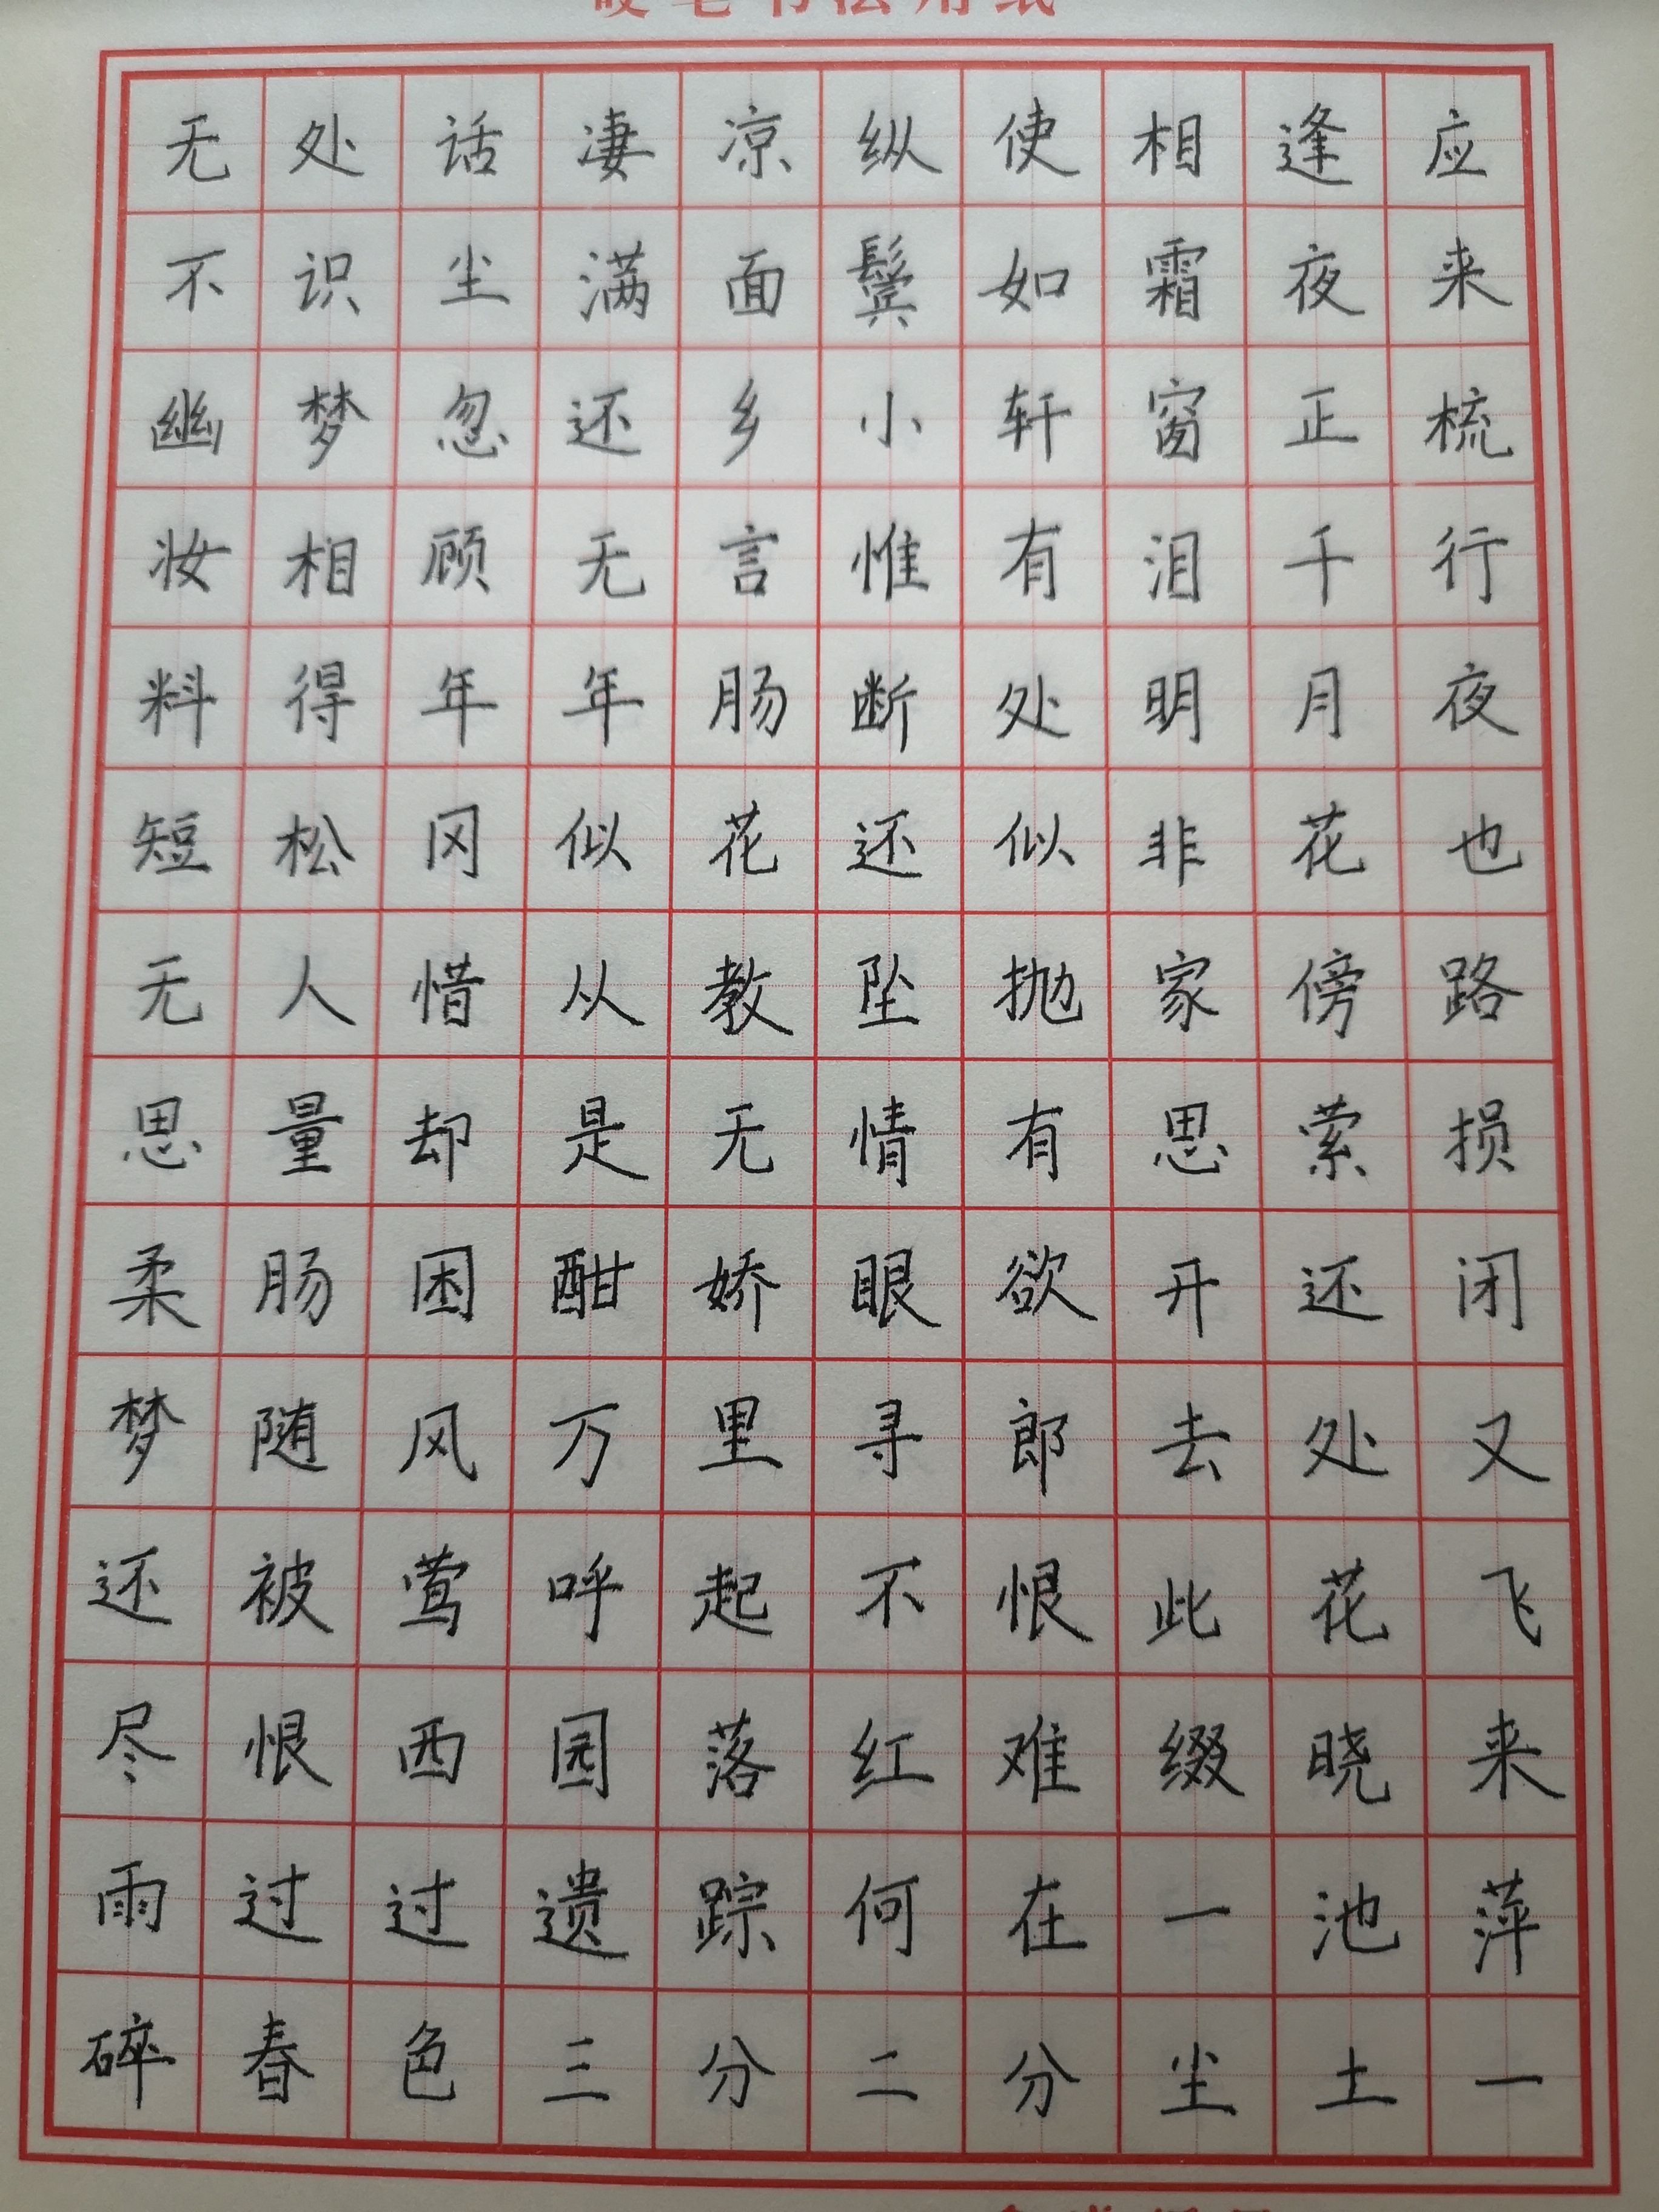 硬笔书法用纸
无处话凄凉纵使相逢应
不识尘满面鬓如霜夜来
幽梦忽还乡小轩窗正梳
妆相顾无言惟有泪千行
料得年年肠断处明月夜
短松冈似花还似非花也
无人惜从教坠抛家傍路
思量却是无情有思萦损
柔肠困酣娇眼欲开还闭
梦随风万里寻郎去处又
还被莺呼起不恨此花飞
尽恨西园落红难缀晓来
雨过过遗踪何在一池萍
碎春色三分二分尘土一